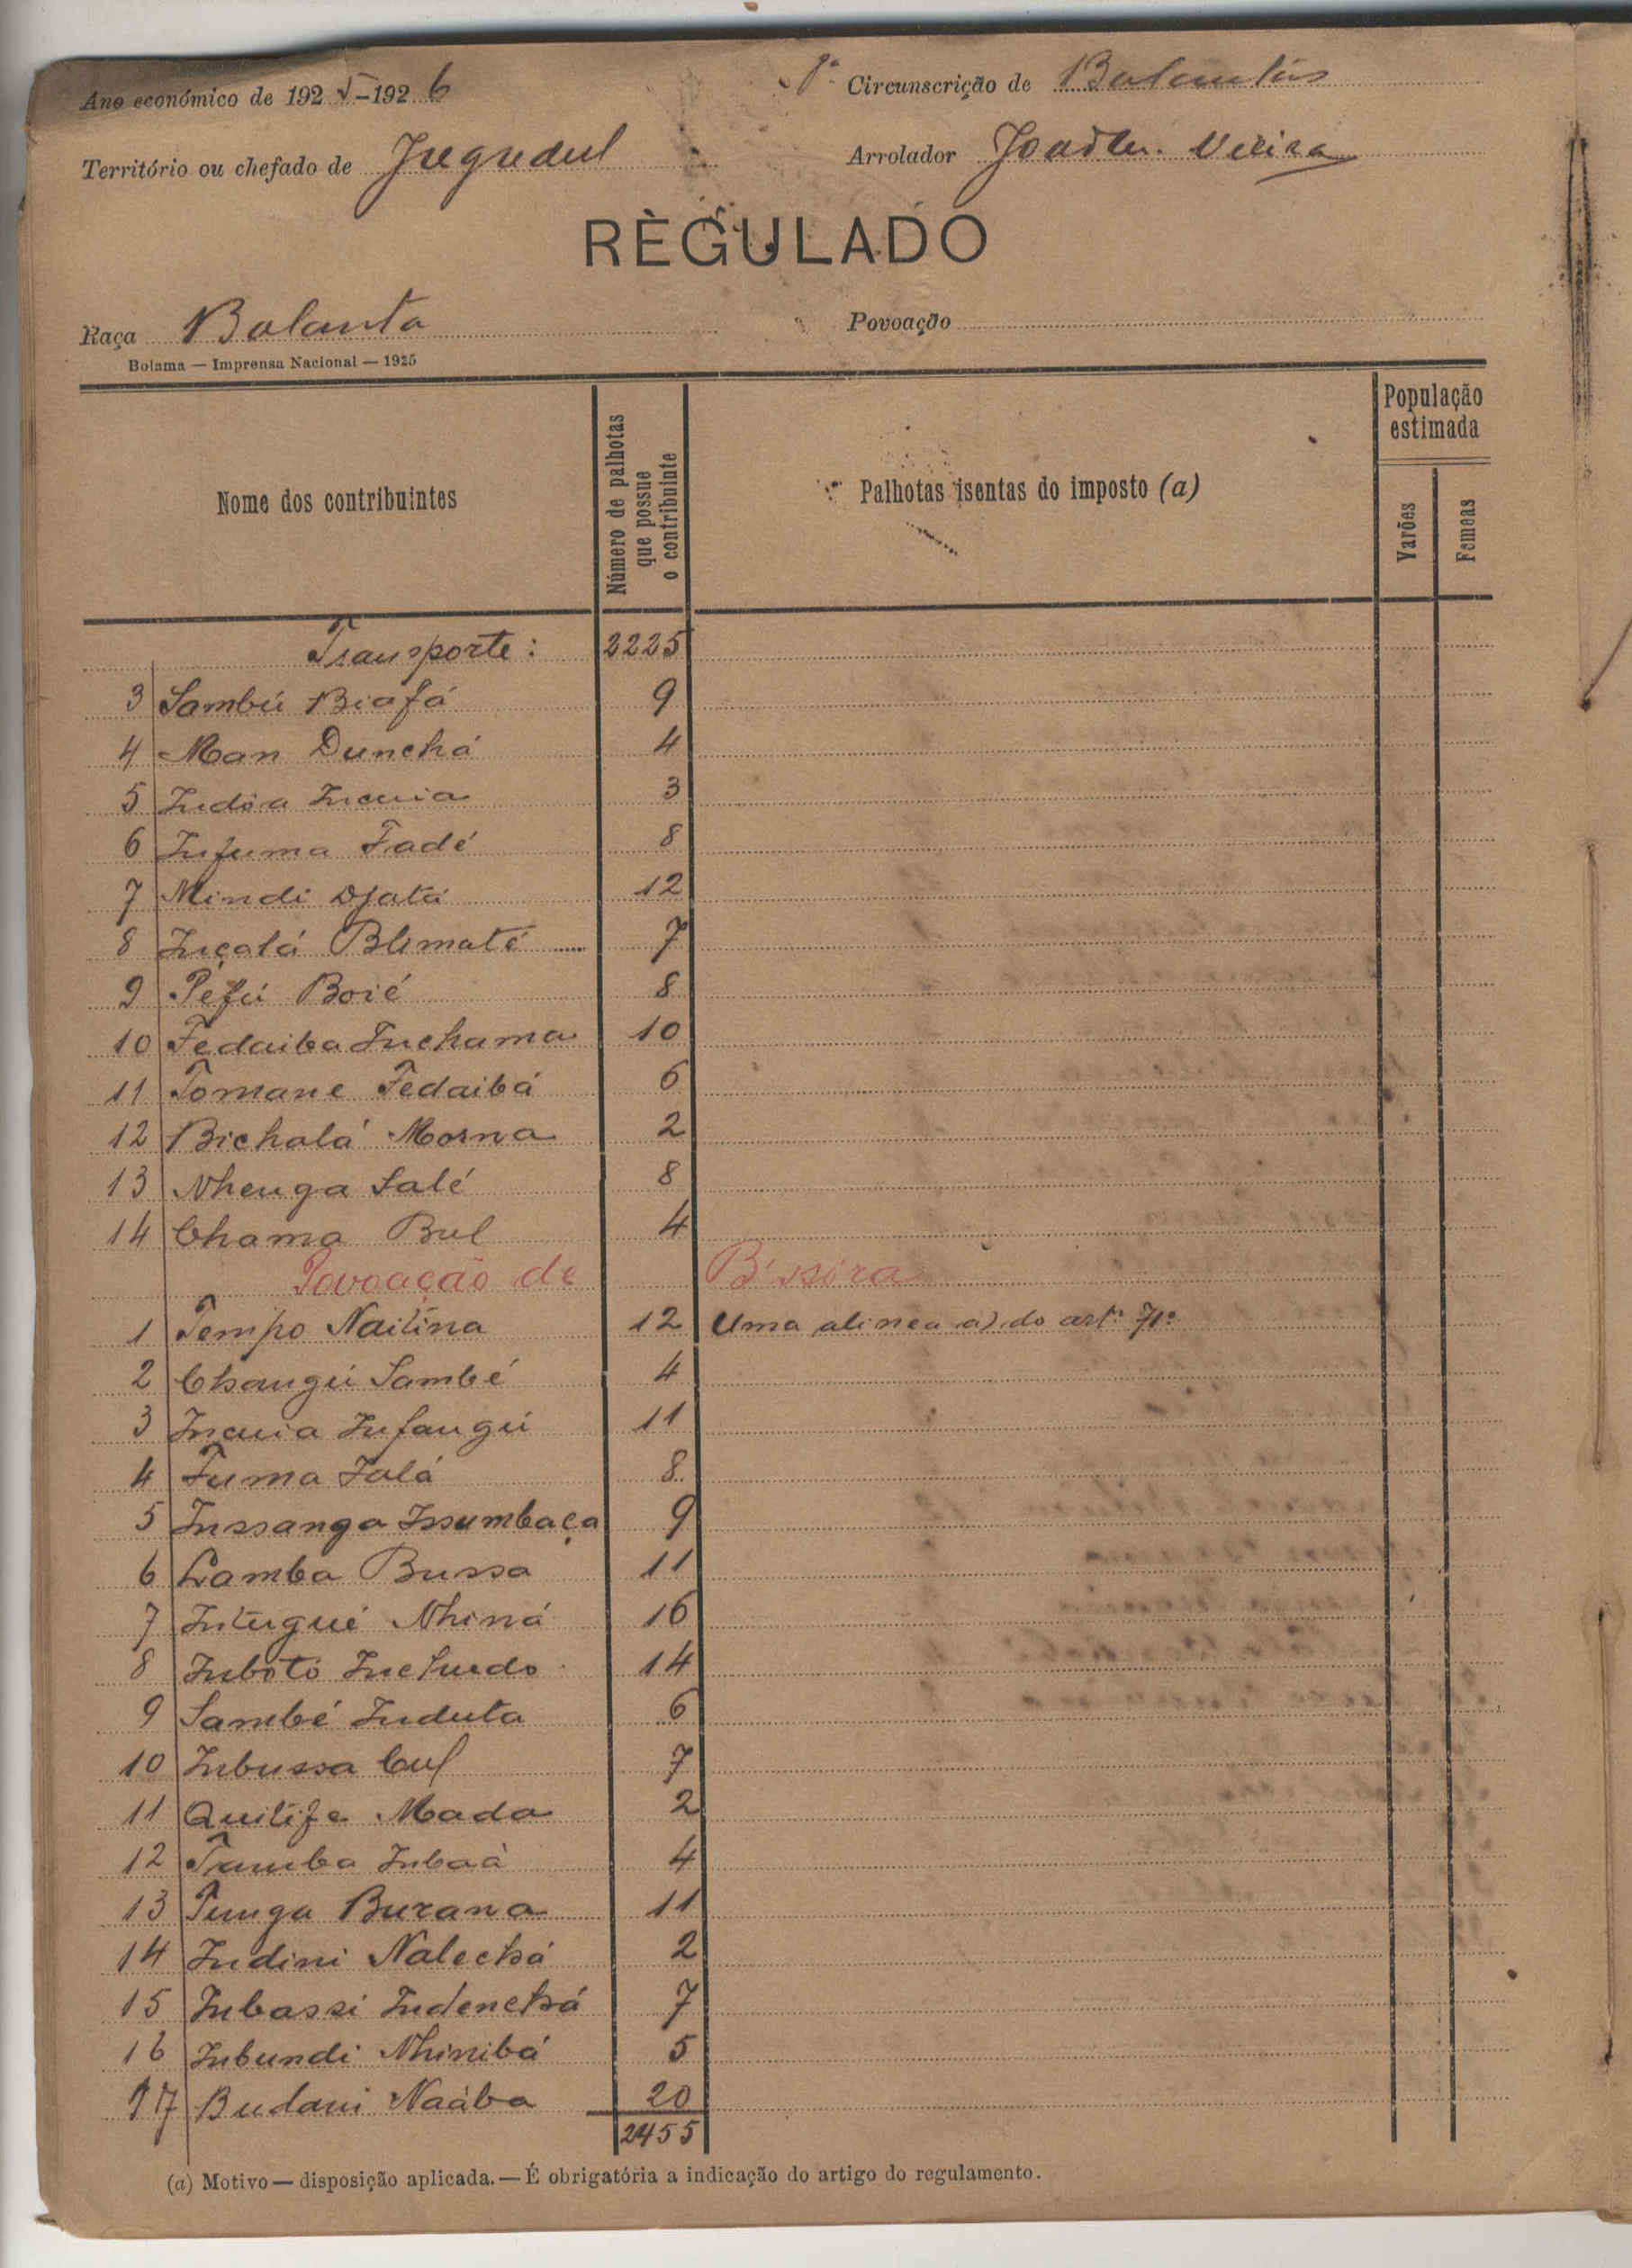 Ano económico de 1925-1926
Circunscrição de Balantas
Território ou chefado de Jugudul
Arrolador Vieira
RÈGULADO
Raça Balanta
Povoação
Bolama — Imprensa Nacional — 1925
Nome dos contribuintes
Número de palhotas que possue o contribuinte
Palhotas isentas do imposto (a)
População estimada
Varões
Femeas
Transporte: 2225
3 Sambú Biafá 9
4 Man Dunchá 4
5 Indôa Incuia 3
6 Infuma Fadé 8
7 Mindi Djatá 12
8 Inçalá Blimaté 7
9 Péfú Boié 8
10 Fedaiba Inchama 10
11 Tomane Fedaibá 6
12 Bichalá Morna 2
13 Nhenga Salé 8
14 Chama Bul 4
Povoação de B'ssóra
1 Tempo Naitina 12 Uma alinea a) do artº 71º
2 Changú Sambé 4
3 Incuia Infangú 11
4 Fuma Ialá 8
5 Inssanga Issumbaça 9
6 Lamba Bussa 11
7 Intugué Nhiná 16
8 Inbotó 14
9 Sambé Induta 6
10 Inbussa Cuf 7
11 Quitife Mada 2
12 Tamba Inbaá 4
13 Tunga Burana 11
14 Indini Nalechá 2
15 Inbassi Indenchá 7
16 Inbundi Nhinibá 5
17 Budani Naába 20
2455
(a) Motivo — disposição aplicada. — É obrigatória a indicação do artigo do regulamento.